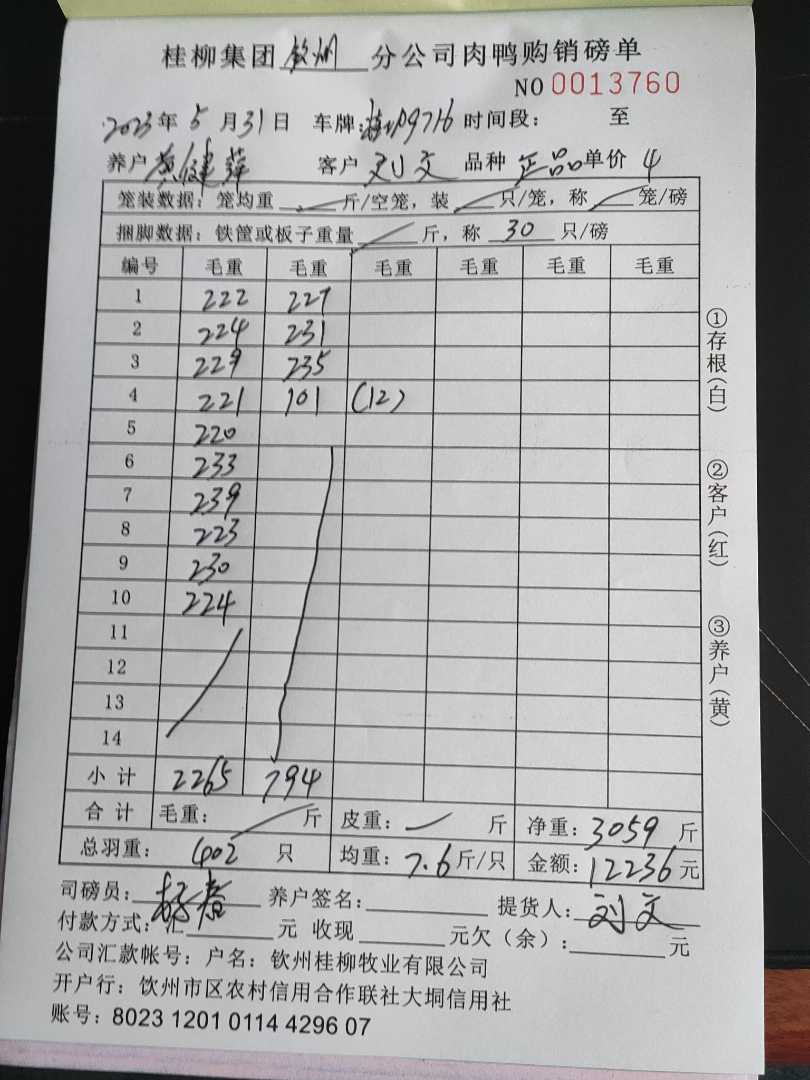 桂柳集团 钦州 分公司肉鸭购销磅单
NO 0013760
2023年 5 月 31日 车牌:桂N09716 时间段: 至
养户 黄健萍 客户 刘文 品种 正品 单价 4
笼装数据:笼均重 斤/空笼,装 只/笼,称 笼/磅
捆脚数据:铁筐或板子重量 斤,称 30 只/磅
编号 毛重 毛重 毛重 毛重 毛重 毛重
1 222 227
2 224 231
3 229 235
4 221 101 (12)
5 220
6 233
7 239
8 223
9 230
10 224
11
12
13
14
小 计 2265 794
合 计 毛重: 斤 皮重: 斤 净重:3059 斤
总羽重: 402 只 均重:7.6斤/只 金额:12236元
司磅员: 养户签名: 提货人:刘文
付款方式:汇 元 收现 元欠(余): 元
公司汇款帐号:户名:钦州桂柳牧业有限公司
开户行:钦州市区农村信用合作联社大垌信用社
账号:8023 1201 0114 4296 07
①存根(白)
②客户(红)
③养户(黄)